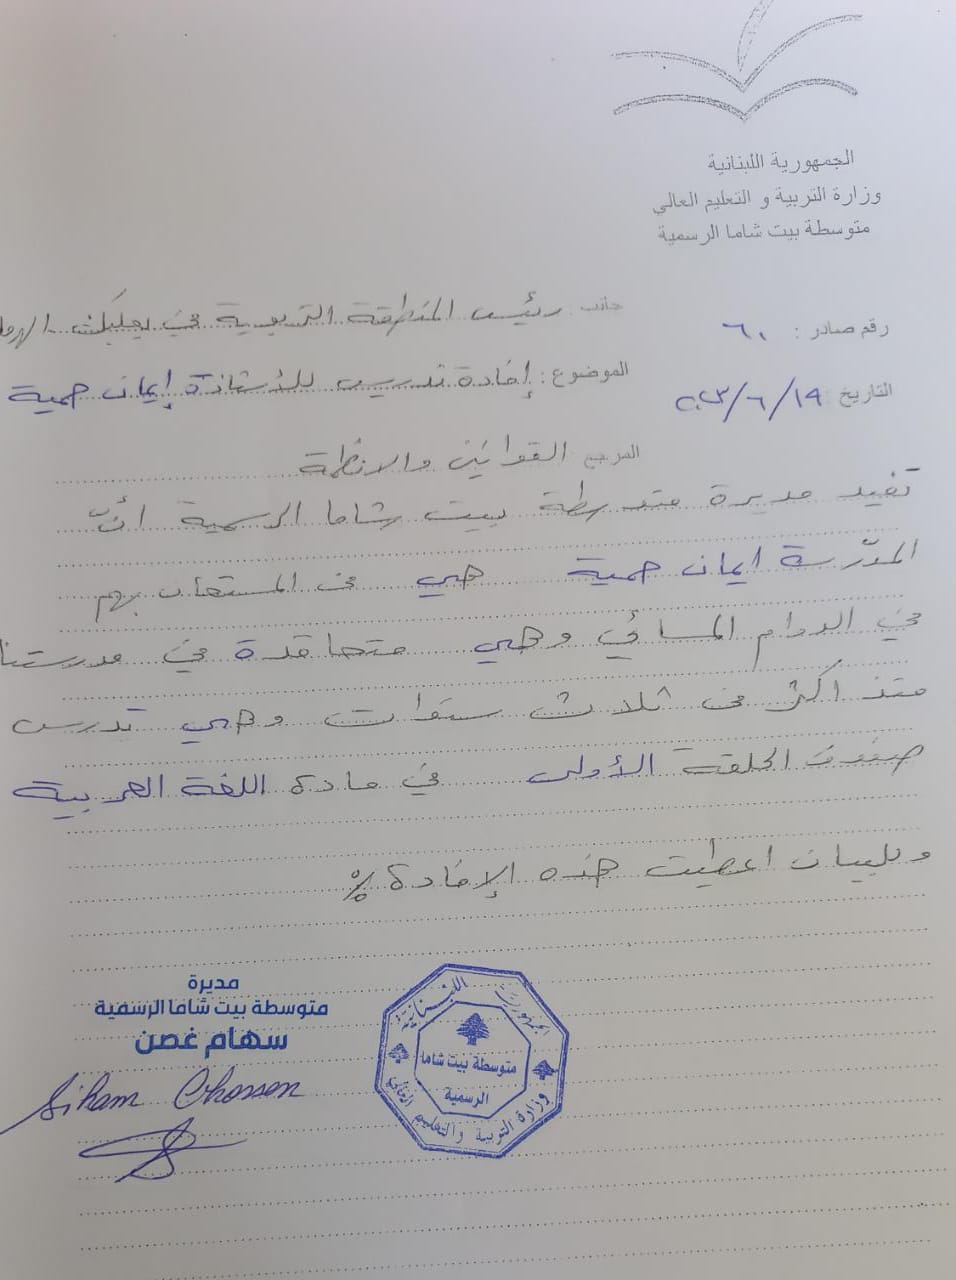 الجمهورية اللبنانية
وزارة التربية و التعليم العالي
متوسطة بيت شاما الرسمية
جانب: رئيس المنطقة التربوية في بعلبك -
رقم صادر : ٦٠
الموضوع: إفادة تدريس للأستاذة إيمان حمية
التاريخ ١٩/٦/٢٠٢٣
المرجع القوانين والانظمة
تفيد مديرة متوسطة بيت شاما الرسمية انّ
المدّرسة ايمان حمية هي من المستعان بهم
في الدوام المسائي وهي متعاقدة في مدرستنا
منذ اكثر من ثلاث سنوات وهي تدرس
صفوف الحلقة الأولى في مادة اللغة العربية
وللبيان اعطيت هذه الإفادة ./.
مديرة
متوسطة بيت شاما الرسمية
سهام غصن
Siham Ghossen
الجمهورية اللبنانية
متوسطة بيت شاما
الرسمية
وزارة التربية والتعليم العالي